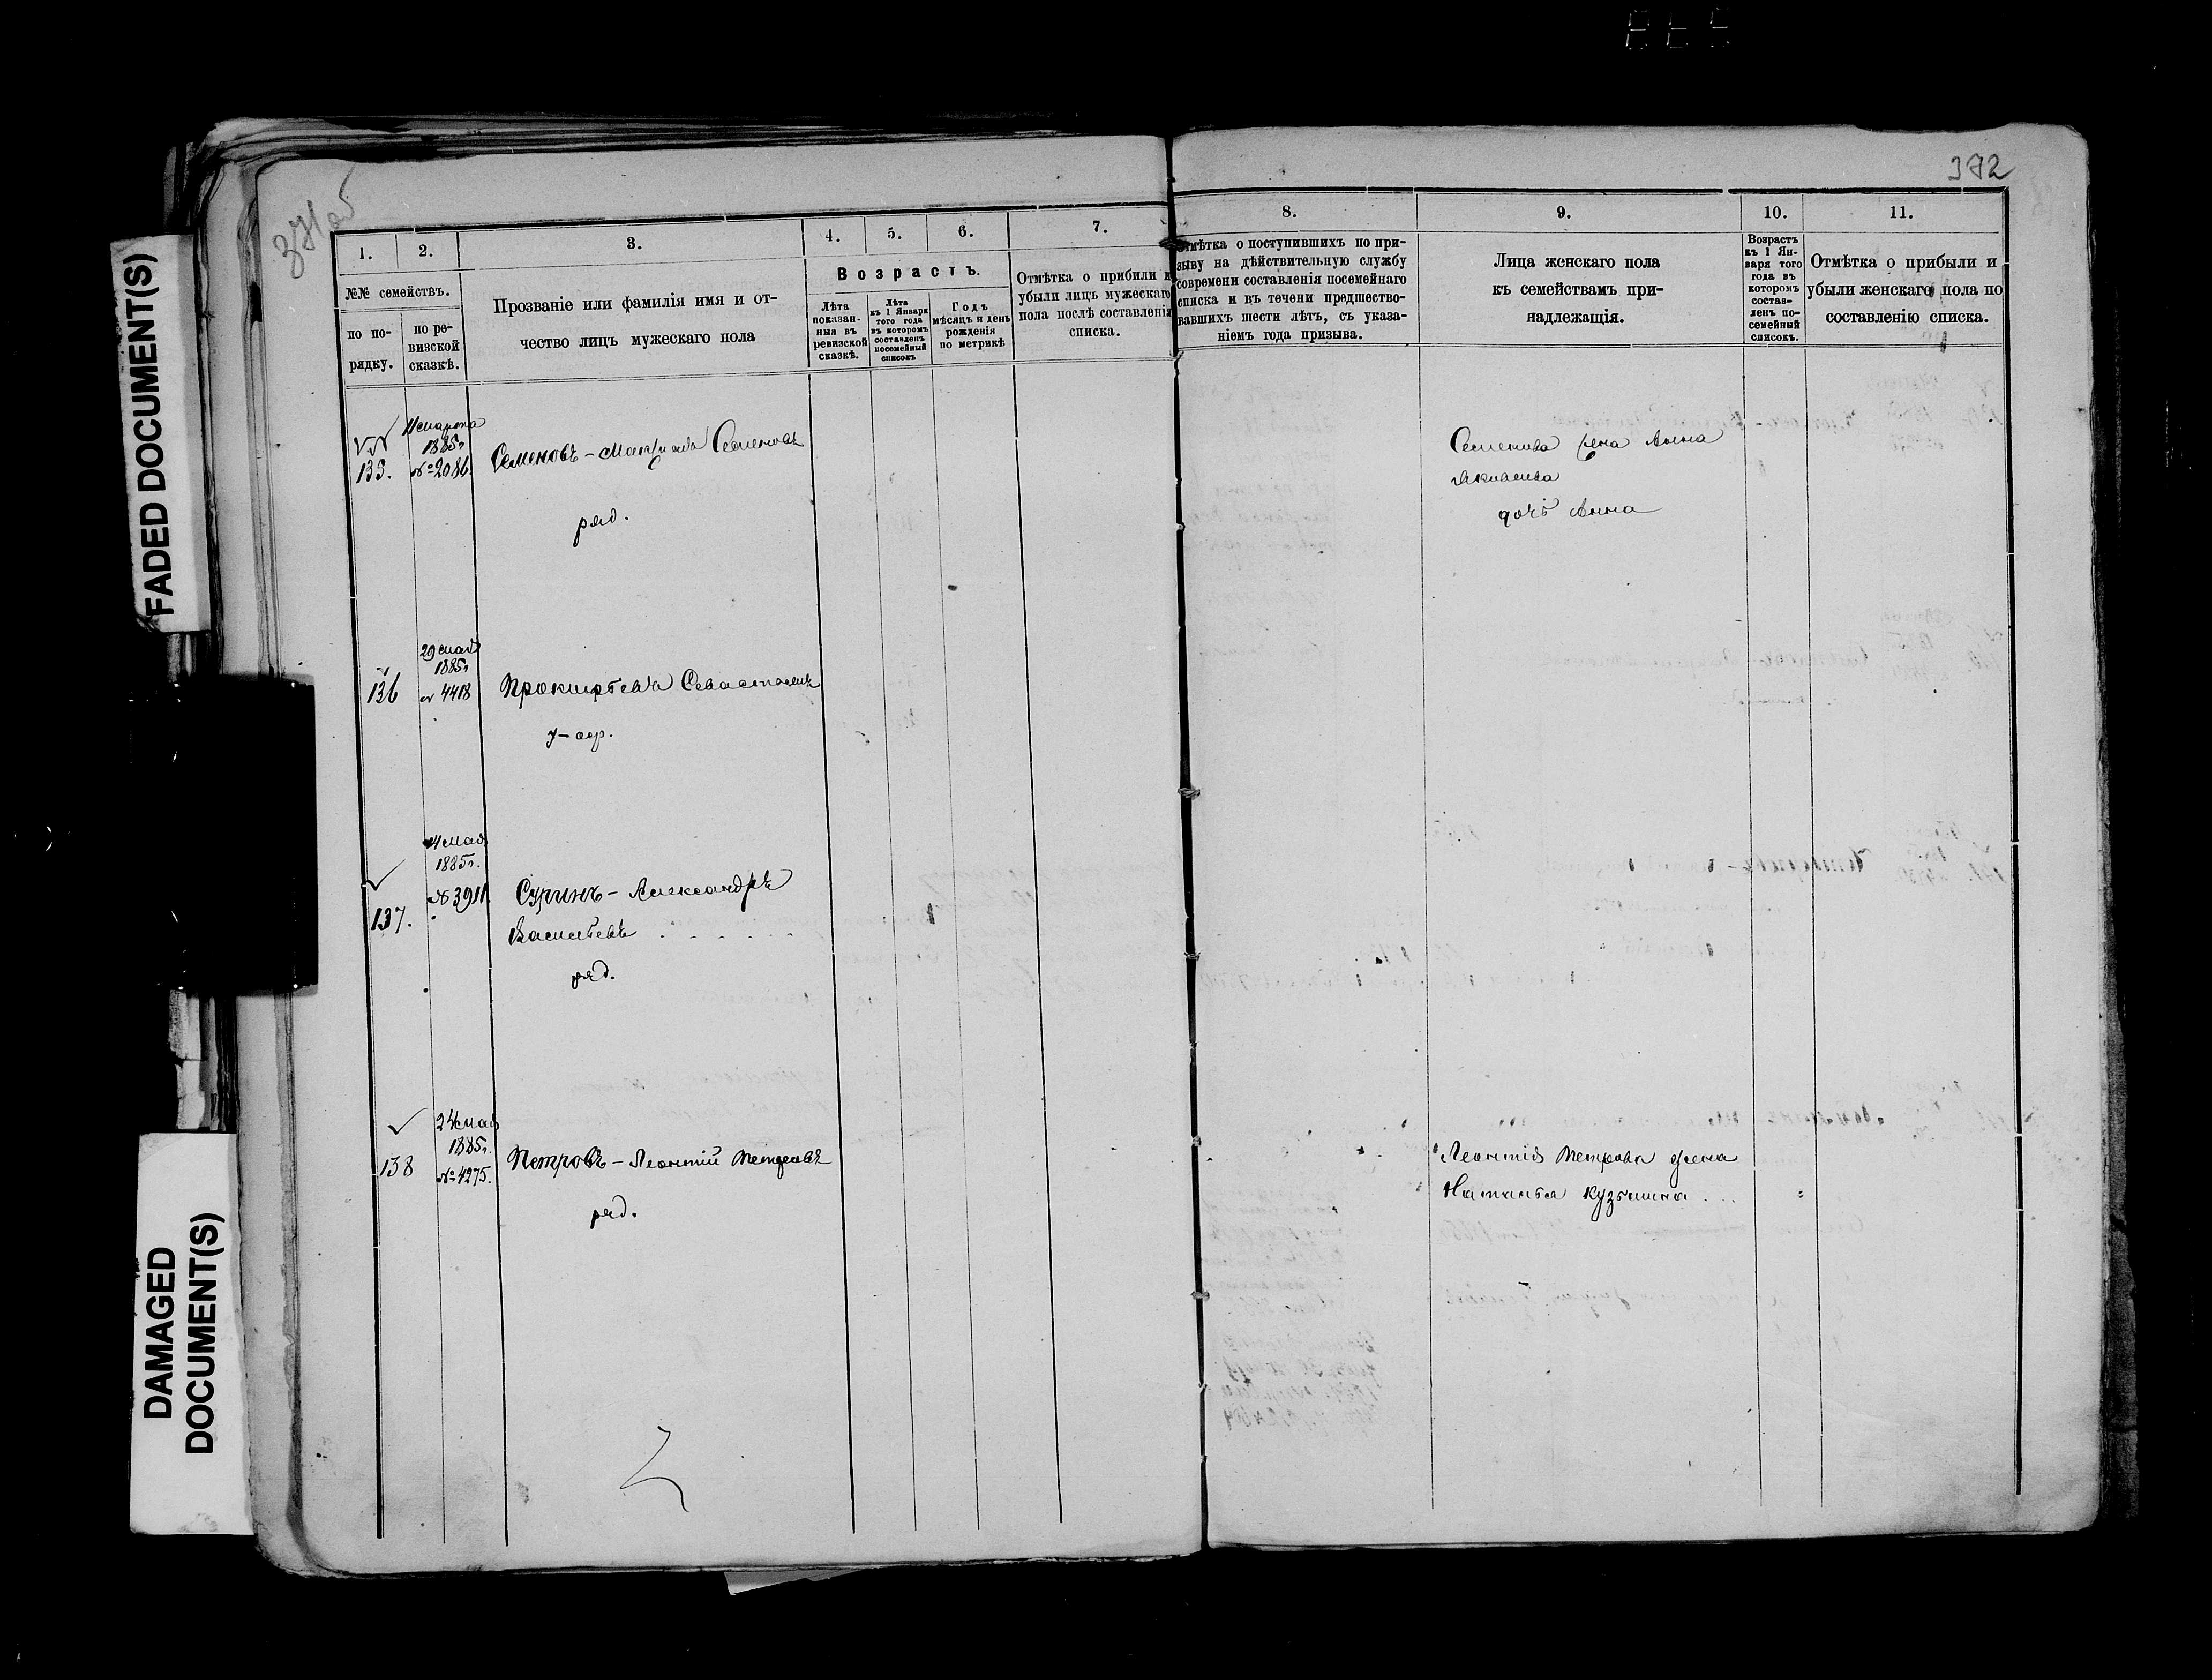 FADED DOCUMENT(S)
DAMAGED
DOCUMENT(S)
371об
1.
2.
3.
4.
5.
6.
7.
№№ семействъ.
по по-
рядку.
по ре-
визской
сказкѣ.
Прозваніе или фамилія имя и от-
чество лицъ мужескаго пола
Возрастъ.
Лѣта
показан-
ныя въ
ревизской
сказкѣ.
Лѣта
къ 1 Января
того года
въ которомъ
составленъ
посемейный
списокъ
Годъ
мѣсяцъ и день
рожденія
по метрикѣ
Отмѣтка о прибили и
убыли лицъ мужескаго
пола послѣ составленія
списка.
135.
11 марта
1885г
№ 2086.
Семеновъ – Семеновъ
ряд.
136
29 мая
1885г
№ 4418
Прокофьевъ Севастьянъ
у-оф.
137.
14 мая
1885г.
№ 3911.
Суринъ – Александръ
Васильевъ
ряд.
138
24 мая
1885г.
№ 4275.
Петровъ – Леонтій Петровъ
ряд.
372
8.
9.
10.
11.
Отмѣтка о поступившихъ по при-
зыву на дѣйствительную службу
современи составленія посемейнаго
списка и въ течени предшество-
вавшихъ шести лѣтъ, съ указа-
ніемъ года призыва.
Лица женскаго пола
къ семействамъ при-
надлежащія.
Возрастъ
къ 1 Ян-
варя того
года въ
которомъ
состав-
ленъ по-
семейный
списокъ.
Отмѣтка о прибыли и
убыли женскаго пола по
составленію списка.
Семенова жена Анна
Акимова
дочь Анна
Леонтія Петрова жена
Наталья Кузьмина